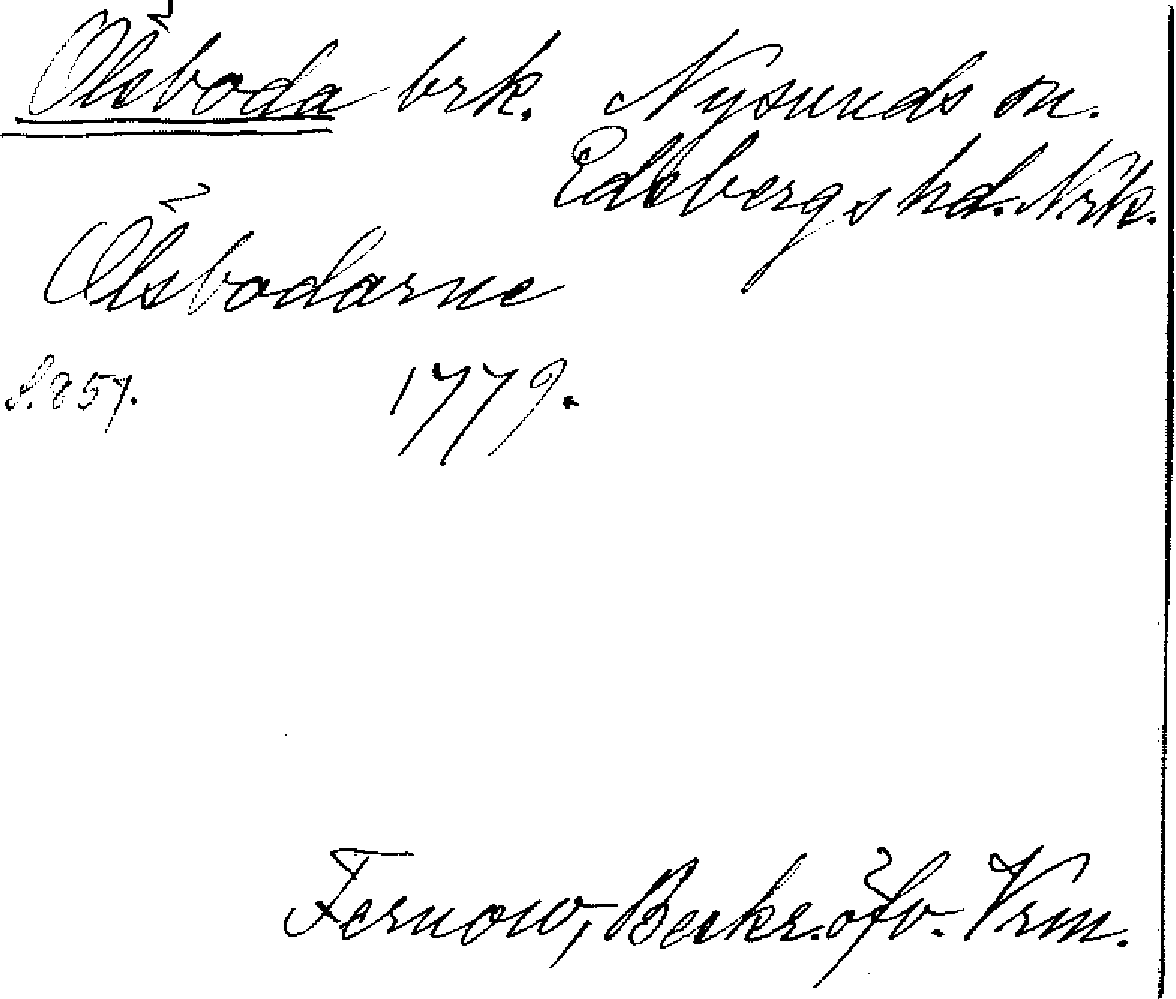 Ölsboda brk. Nysunds sn.
Edsbergs hd. Nrk.
Ölsbodarne
S. 857. 1779.
Fernow, Beskr. öfv. Vrm.